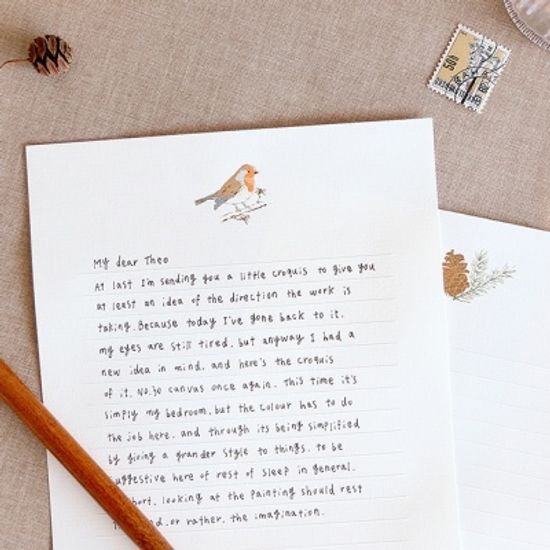 My dear Theo
At last I'm sending you a little croquis to give you
at least an idea of the direction the work is
taking. Because today I've gone back to it.
my eyes are still tired, but anyway I had a
new idea in mind, and here's the croquis
of it. No.30 canvas once again. This time it's
simply my bedroom, but the colour has to do
the job here, and through its being simplified
by giving a grander style to things, to be
suggestive here of rest of sleep in general.
looking at the painting should rest
or rather, the imagination.
50